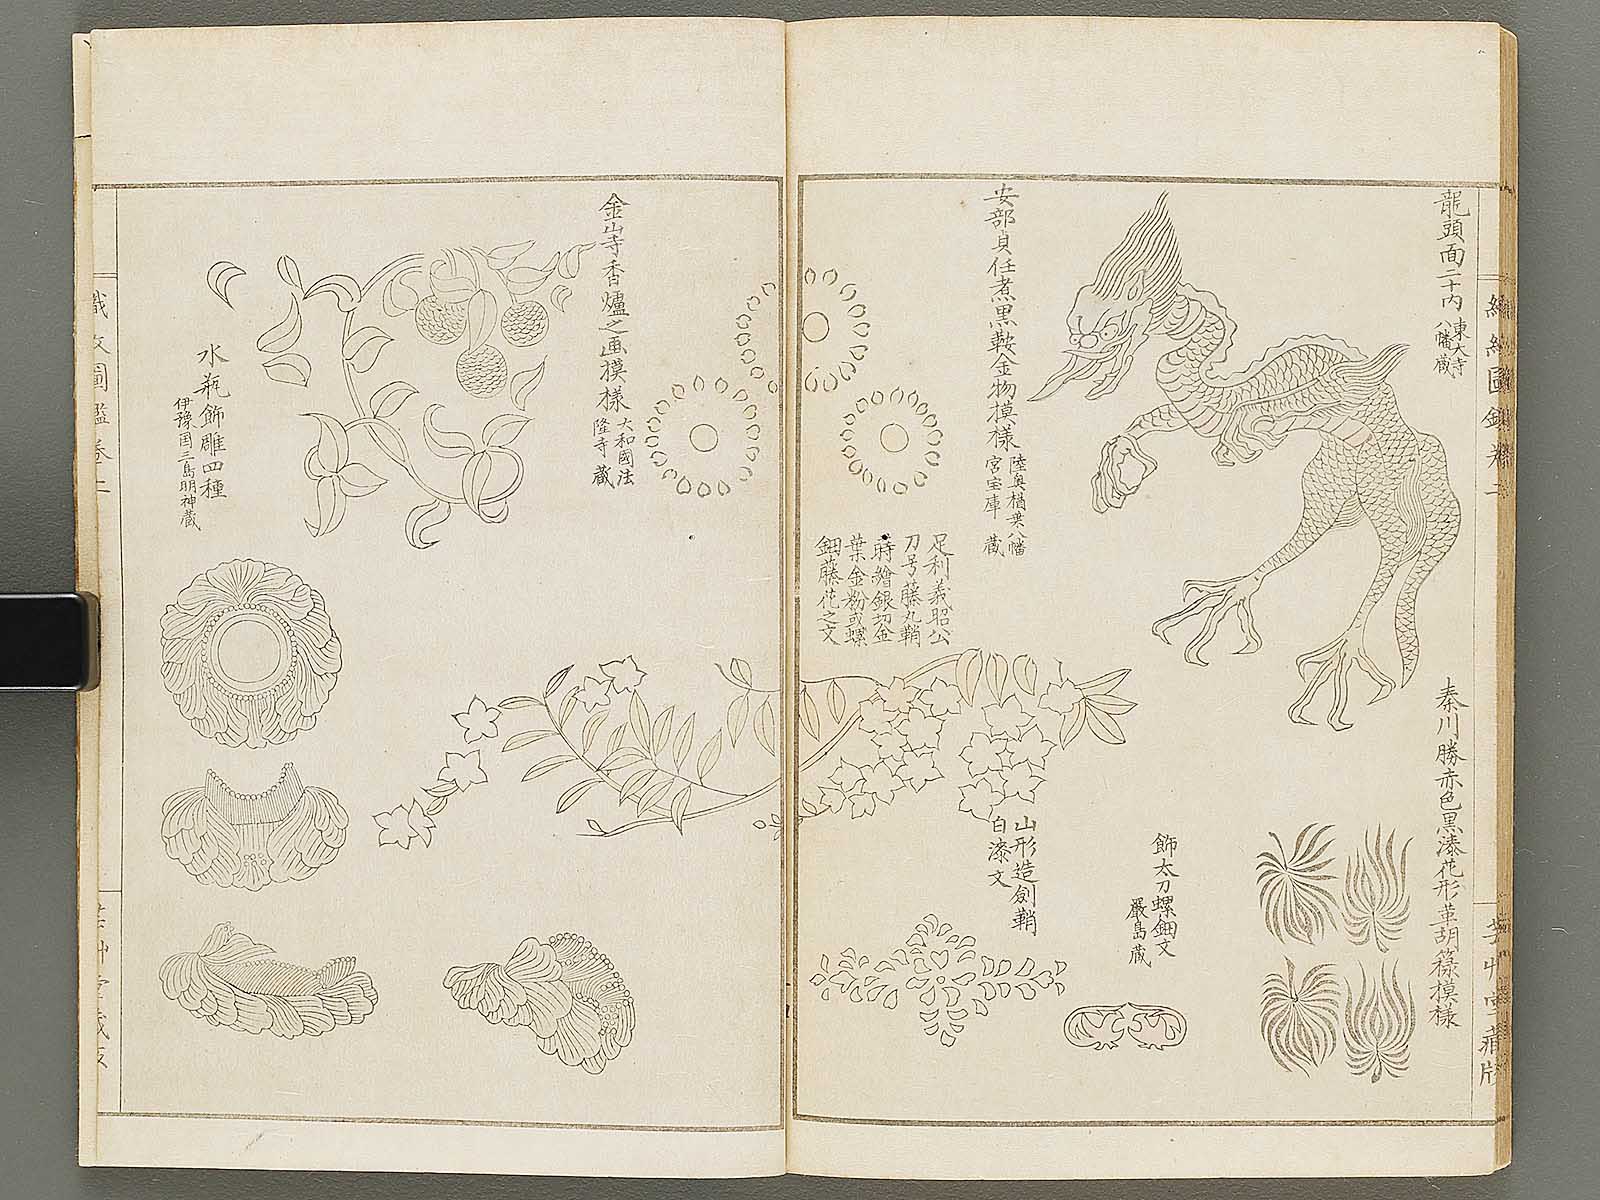 龍頭面二十内
東大寺
八幡蔵
秦川勝赤色黒漆花形革胡籙模様
安部貞任煮黒鞍金物模様
陸奥楢葉八幡
宮宝庫蔵
飾太刀螺鈿文
嚴島蔵
足利義昭公
刀号藤丸鞘
蒔繪銀切金
葉金粉或螺
鈿藤花之文
山形造劍鞘
白漆文
金山寺香爐之画模樣
大和國法
隆寺蔵
水瓶飾雕四種
伊豫国三島明神蔵